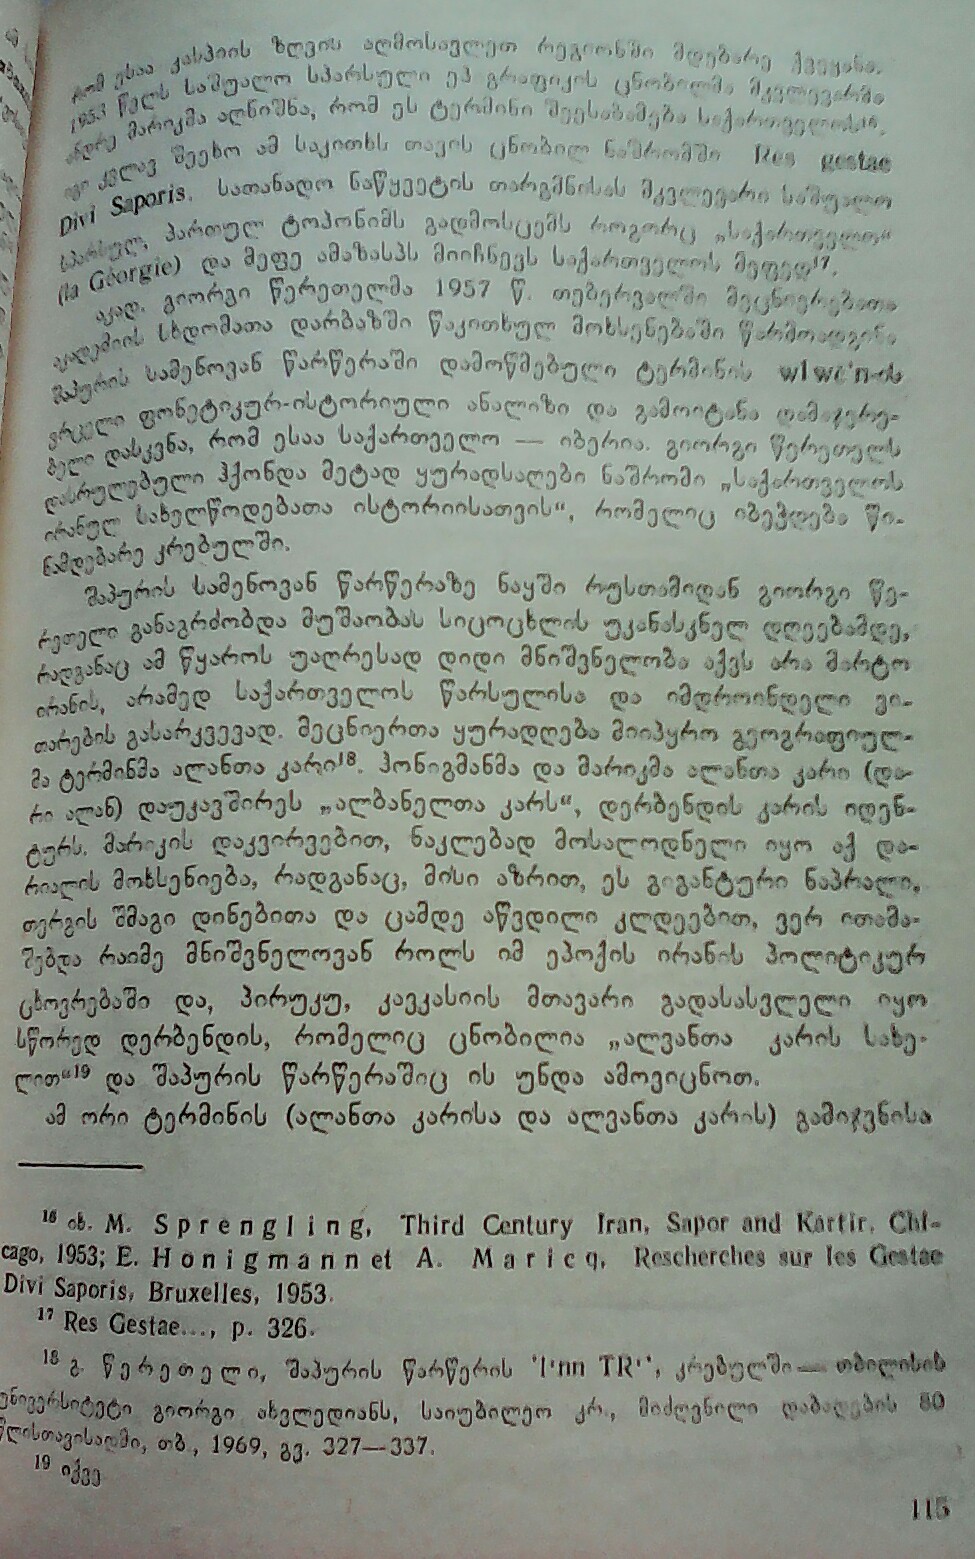 რომ ესაა კასპიის ზღვის აღმოსავლეთ რეგიონში მდებარე ქვეყანა.
1953 წელს საშუალო სპარსული ეპიგრაფიკის ცნობილმა მკვლევარმა
ანდრე მარიკმა აღნიშნა, რომ ეს ტერმინი შეესაბამება საქართველოს¹⁶.
იგი კვლავ შეეხო ამ საკითხს თავის ცნობილ ნაშრომში Res gestae
Divi Saporis. სათანადო ნაწყვეტის თარგმნისას მკვლევარი საშუალო
სპარსულ, პართულ ტოპონიმს გადმოსცემს როგორც „საქართველო“
(la Géorgie) და მეფე ამაზასპს მიიჩნევს საქართველოს მეფედ¹⁷.
აკად. გიორგი წერეთელმა 1957 წ. თებერვალში მეცნიერებათა
აკადემიის სხდომათა დარბაზში წაკითხულ მოხსენებაში წარმოადგინა
შაპურის სამენოვან წარწერაში დამოწმებული ტერმინის wlwc'n-ის
ვრცელი ფონეტიკურ-ისტორიული ანალიზი და გამოიტანა დამაჯერე-
ბელი დასკვნა, რომ ესაა საქართველო — იბერია. გიორგი წერეთელს
დასრულებული ჰქონდა მეტად ყურადსაღები ნაშრომი „საქართველოს
ირანულ სახელწოდებათა ისტორიისათვის“, რომელიც იბეჭდება წი-
ნამდებარე კრებულში.
შაპურის სამენოვან წარწერაზე ნაყში რუსთამიდან გიორგი წე-
რეთელი განაგრძობდა მუშაობას სიცოცხლის უკანასკნელ დღეებამდე,
რადგანაც ამ წყაროს უაღრესად დიდი მნიშვნელობა აქვს არა მარტო
ირანის, არამედ საქართველოს წარსულისა და იმდროინდელი ვი-
თარების გასარკვევად. მეცნიერთა ყურადღება მიიპყრო გეოგრაფიულ-
მა ტერმინმა ალანთა კარი¹⁸. ჰონიგმანმა და მარიკმა ალანთა კარი (და-
რი ალან) დაუკავშირეს „ალბანელთა კარს“, დერბენდის კარის იდენ-
ტურს. მარიკის დაკვირვებით, ნაკლებად მოსალოდნელი იყო აქ და-
რიალის მოხსენიება, რადგანაც, მისი აზრით, ეს გიგანტური ნაპრალი,
თერგის შმაგი დინებითა და ცამდე აწვდილი კლდეებით, ვერ ითამა-
შებდა რაიმე მნიშვნელოვან როლს იმ ეპოქის ირანის პოლიტიკურ
ცხოვრებაში და, პირუკუ, კავკასიის მთავარი გადასასვლელი იყო
სწორედ დერბენდის, რომელიც ცნობილია „ალვანთა კარის სახე-
ლით“¹⁹ და შაპურის წარწერაშიც ის უნდა ამოვიცნოთ.
ამ ორი ტერმინის (ალანთა კარისა და ალვანთა კარის) გამიჯვნისა
¹⁶ იხ. M. Sprengling, Third Century Iran, Sapor and Kartir, Chi-
cago, 1953; E. Honigmann et A. Maricq, Rescherches sur les Gestae
Divi Saporis, Bruxelles, 1953.
¹⁷ Res Gestae..., p. 326.
¹⁸ გ. წერეთელი, შაპურის წარწერის TR, კრებულში — თბილისის
უნივერსიტეტი გიორგი ახვლედიანს, საიუბილეო კრ., მიძღვნილი დაბადების 80
წლისთავისადმი, თბ., 1969, გვ. 327—337.
¹⁹ იქვე
115